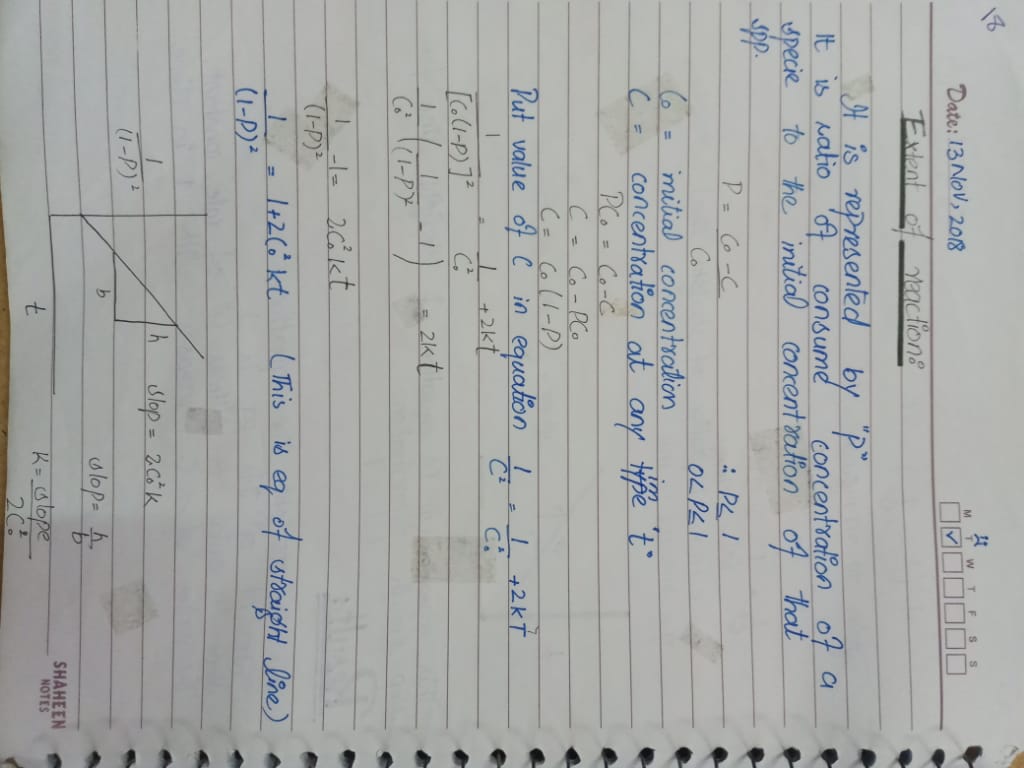 18
Date: 13 Nov, 2018
M T W T F S S
Extent of reactions
It is represented by "p"
It is ratio of consume concentration of a
specie to the initial concentration of that
spp.
P = C₀ - C / C₀ ∴ P ≤ 1
0 < P ≤ 1
C₀ = initial concentration
C = concentration at any time 't'
PC₀ = C₀ - C
C = C₀ - PC₀
C = C₀ (1-P)
Put value of C in equation 1/C² = 1/C₀² + 2kt
1/[C₀(1-P)]² = 1/C₀² + 2kt
1/C₀² (1/(1-P)² - 1) = 2kt
1/(1-P)² - 1 = 2C₀²kt
1/(1-P)² = 1 + 2C₀²kt (This is eq of straight line)
1/(1-P)²
h
b
t
slop = 2C₀²k
slop = h/b
K = slope/2C₀²
SHAHEEN
NOTES